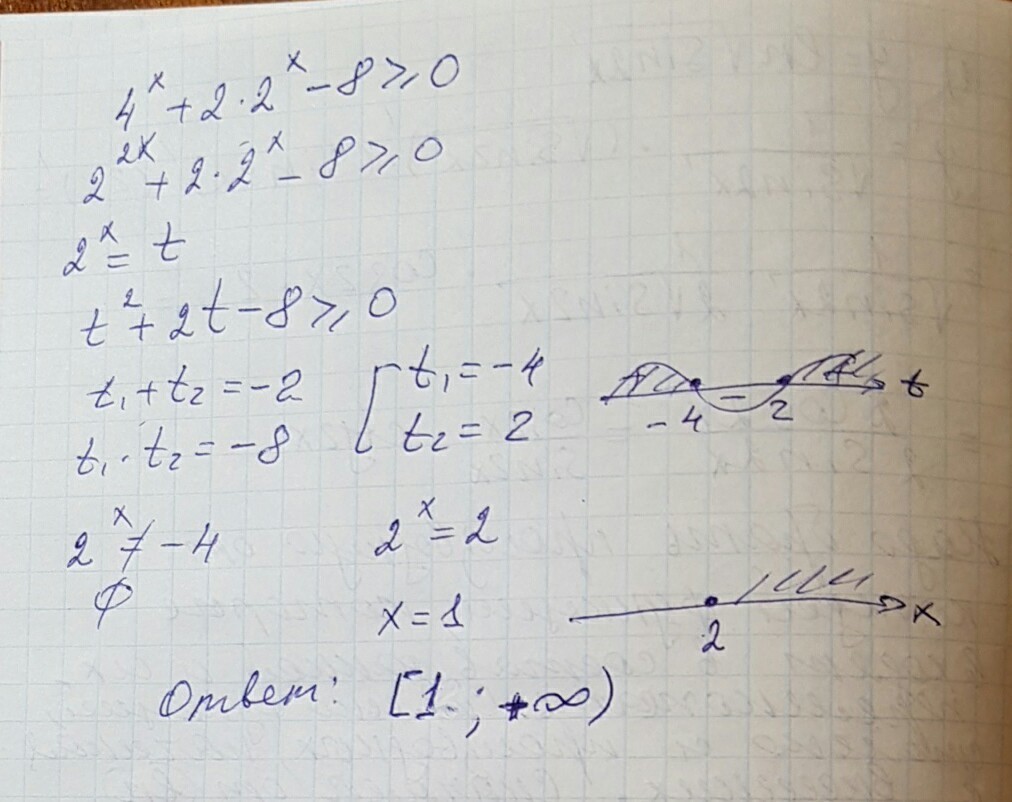 4ˣ + 2 · 2ˣ − 8 ⩾ 0
2²ˣ + 2 · 2ˣ − 8 ⩾ 0
2ˣ = t
t² + 2t − 8 ⩾ 0
t₁ + t₂ = −2
t₁ · t₂ = −8
[ t₁ = −4
t₂ = 2
− t
−4 2
2ˣ ≠ −4
∅
2ˣ = 2
x = 1
x
2
Ответ: [1 ; +∞)